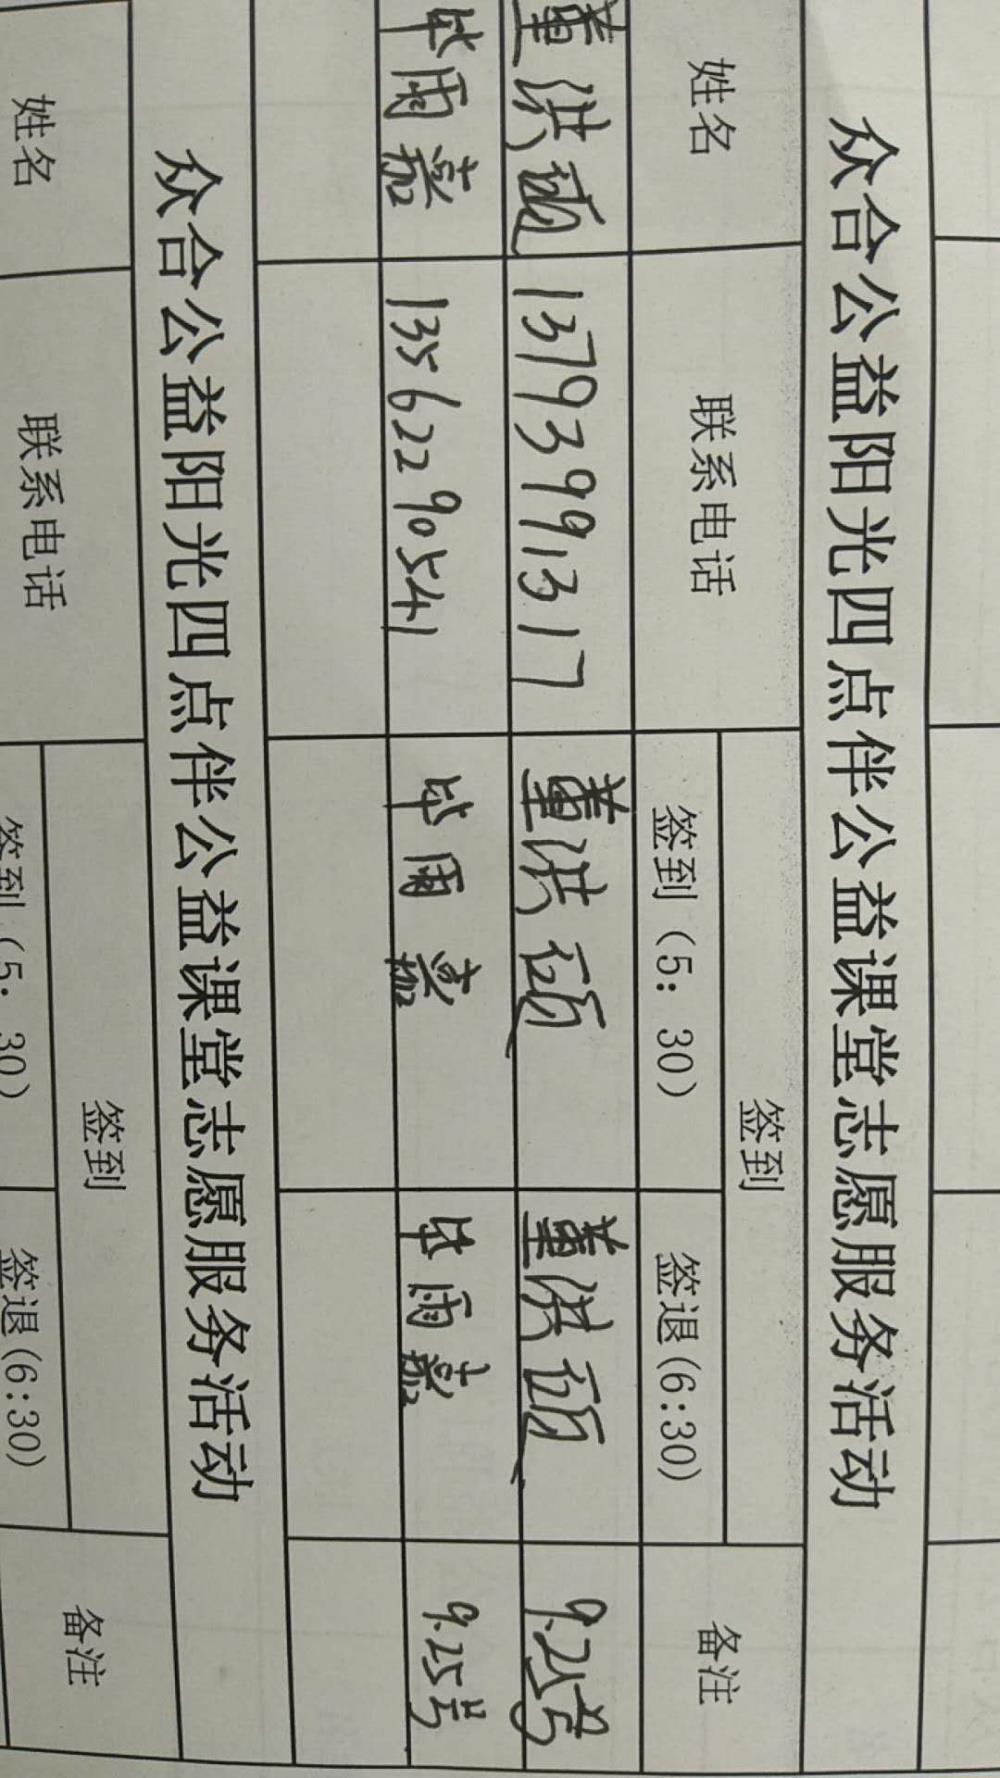 众合公益阳光四点伴公益课堂志愿服务活动
姓名 联系电话 签到 备注
签到（5：30） 签退(6:30)
董洪硕 137939991317 董洪硕 董洪硕 9.25号
毕雨嘉 13562290541 毕雨嘉 毕雨嘉 9.25号
众合公益阳光四点伴公益课堂志愿服务活动
姓名 联系电话 签到 备注
签到（5：30） 签退(6:30)